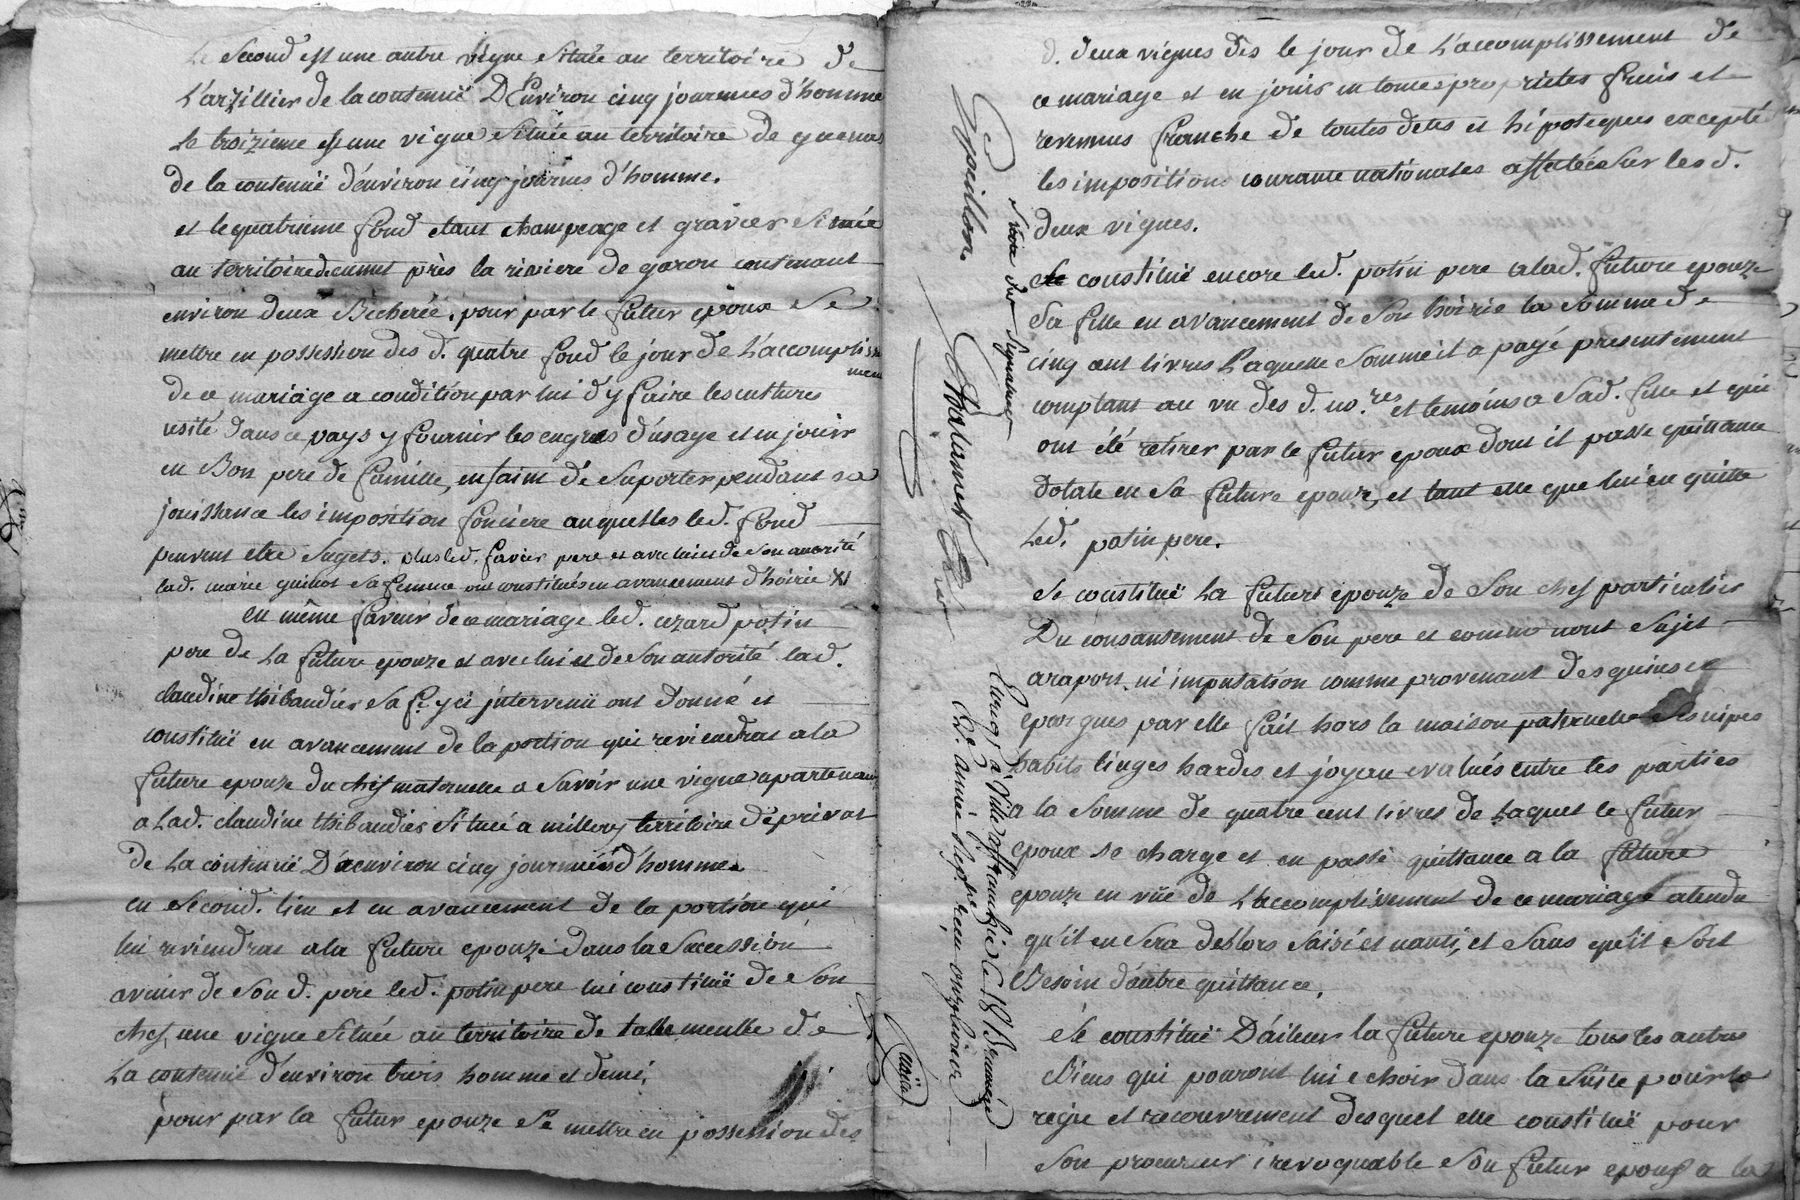 Le Second est une autre vigne Située au territoire de
L'arzillier de la contenuë D'Environ cinq journées d'homme
Le troizieme est une vigne Située au territoire de
de la contenuë d'environ cinq journés d'homme.
et le quatrieme fond etant champeage et gravier Située
au territoire près la riviere de garon contenant
environ deux Bicherée. pour par le futur époux Se
mettre en possession des d. quatre fond le jour de L'accomplisse
ment
de ce mariage a condition par lui d'y faire les cultures
usité Dans ce pays y fournir les engres d'usage et en jouir
en Bon pere de famille, enfaint de Suporter pendant sa
jouissance les imposition fonciere auquelles led. fond
peuvent etre Sugets. plus led. favier pere et avec lui et de Son autorité
lad. marie guinot Sa femme ont constitués en avancement d'hoirie X
en même faveur de ce mariage led. cezard potin
pere de La future epouze et avec lui et de Son autorité lad.
claudine thibaudier Sa fe. y ci intervenü ont donné et
constitüé en avancement de la portion qui reviendrat a la
future epouze du chef maternelle a Savoir une vigne apartenant
a Lad. claudine thibaudier Située a millery territoire
De La contenuë D'aenviron cinq journées d'homme
en Second. lieu et en avancement de la portion qui
lui reviendrat a la future epouze dans la Succession
avenir de Son d. pere led. potin pere lui constitüe de Son
chef, une vigne Située au territoire de de
La contenuë d'environ trois homme et demi,
pour par la futur epouze Se mettre en possession des
d. deux vignes dès le jour de L'accomplissement de
ce mariage et en jouir en toutes propriétés fruis et
revenus franche de toutes detes et hipoteques excepté
les impositions courante nationales affectées Sur les d.
deux vignes.
Se constitüe encore led. potin pere a lad. future epouze
Sa fille en avancement de Son hoirie la Somme de
cinq cent livres Laquelle Somme il a payé presentement
comptant au vu des d. no.res et temoins a Sad. fille et qui
ont été retirer par le futur epoux dont il passe quittance
Dotale en Sa future epouze, et tant elle que lui en quitte
Led. potin pere.
Se constitüe La future epouze de Son chef particulier
Du consantement de Son pere et comme nont Sujet
araport. ni imputation comme provenant des guins et
epargnes par elle fait hors la maison paternelle Ses nipes
habits linges hardes et joyau evalués entre les parties
a la Somme de quatre cent livres de Laquel le futur
epoux se charge et en passe quittance a la future
epouze en vüe de L'accomplissement de ce mariage atendu
qu'il en Sera deslors Saisi et nanti, et Sans qu'il Soit
Besoin d'autre quittance.
Se constitüe D'ailleur la future epouze tous les autres
Biens qui pouront lui echoir dans la Suite pour la
regie et recouvrement desquel elle constitüe pour
Son procureur irevoquable Son futur epoux a la